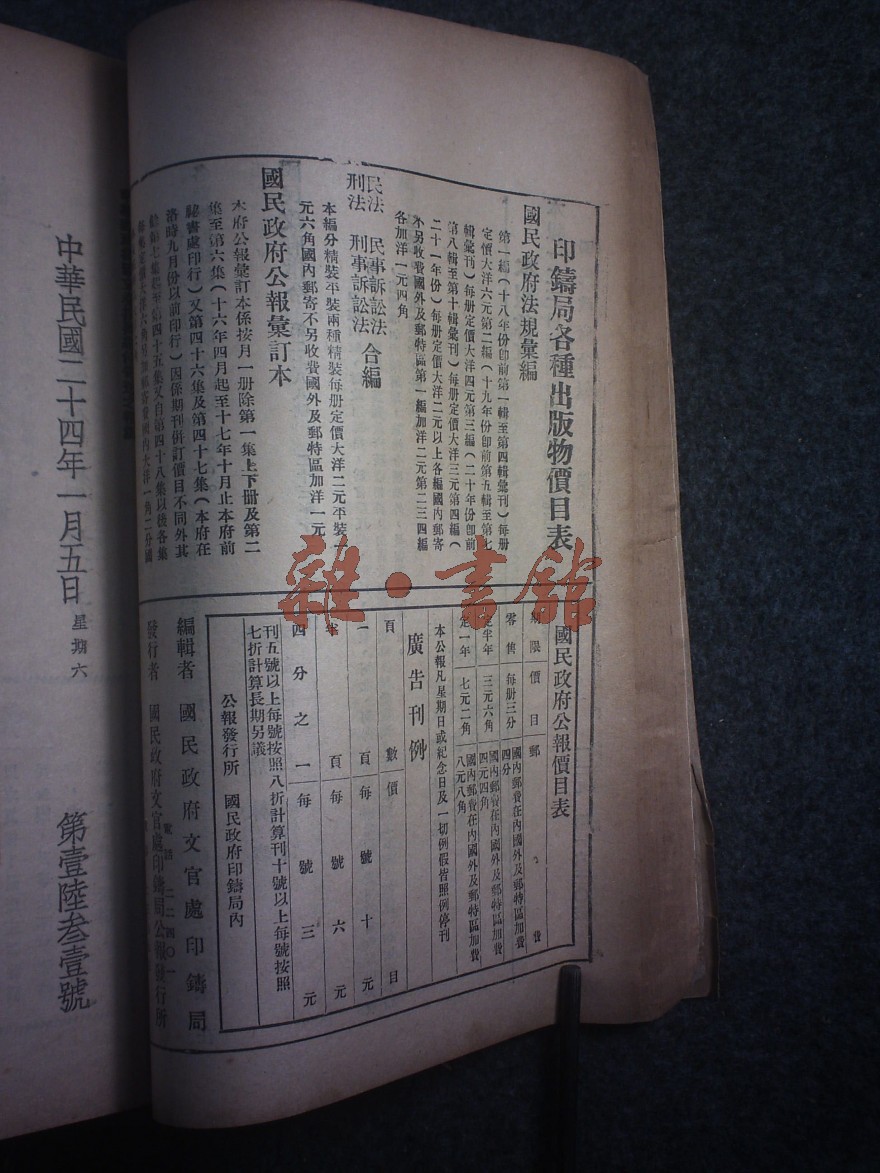 印鑄局各種出版物價目表
國民政府法規彙編
第一編(十八年份卽前第一輯至第四輯彙刊)每册
定價大洋六元第二編(十九年份卽前第五輯至第七
輯彙刊)每册定價大洋四元第三編(二十年份卽前
第八輯至第十輯彙刊)每册定價大洋三元第四編(
二十一年份)每册定價大洋二元以上各編國內郵寄
不另收費國外及郵特區第一編加洋二元第二三四編
各加洋一元四角
民法 民事訴訟法
刑法 刑事訴訟法
合編
本編分精裝平裝兩種精裝每册定價大洋二元平裝一
元六角國內郵寄不另收費國外及郵特區加洋一元
國民政府公報彙訂本
本府公報彙訂本係按月一册除第一集上下册及第二
集至第六集(十六年四月起至十七年十月止本府前
秘書處印行)又第四十六集及第四十七集(本府在
洛時九月份以前印行)因係期刊併訂價目不同外其
四十五集又自第四十八集以後各集
國內大洋一角二分國
國民政府公報價目表
期限 價目 郵費
零售 每册三分 國內郵費在內國外及郵特區加費四分
定半年 三元六角 國內郵費在內國外及郵特區加費四元四角
定一年 七元二角 國內郵費在內國外及郵特區加費八元八角
本公報凡星期日或紀念日及一切例假皆照例停刊
廣告刊例
頁數 價目
一頁 每號十元
半頁 每號六元
四分之一 每號三元
刊五號以上每號按照八折計算刊十號以上每號按照
七折計算長期另議
公報發行所 國民政府印鑄局內
編輯者 國民政府文官處印鑄局
發行者 國民政府文官處印鑄局公報發行所
電話 二二四〇一
中華民國二十四年一月五日 星期六
第壹陸叁壹號
雜·書館